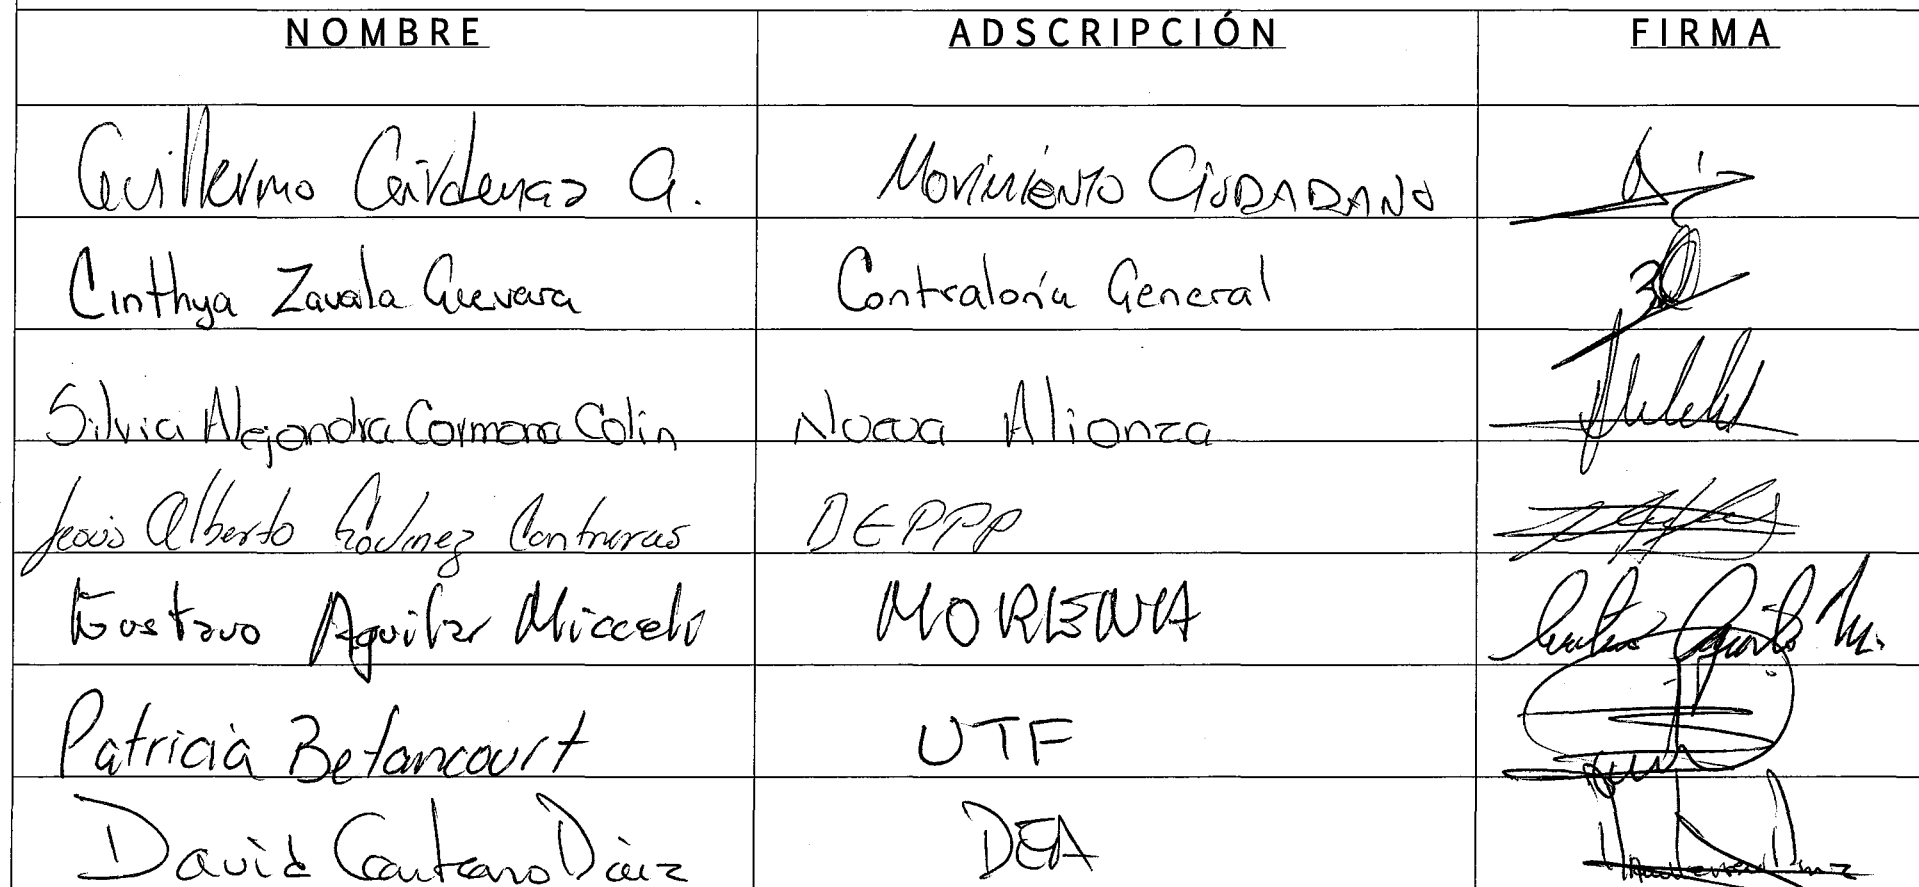 NOMBRE ADSCRIPCIÓN FIRMA
Guillermo Cárdenas G. Movimiento CiUDADANO
Cinthya Zavala Guevara Contraloría General
Silvia Alejandra Carmona Colin Nueva Alianza
Jesús Alberto Godínez Contreras DEPPP
Gustavo Aguilar Micceli MORENA
Patricia Betancourt UTF
David Díaz DEA